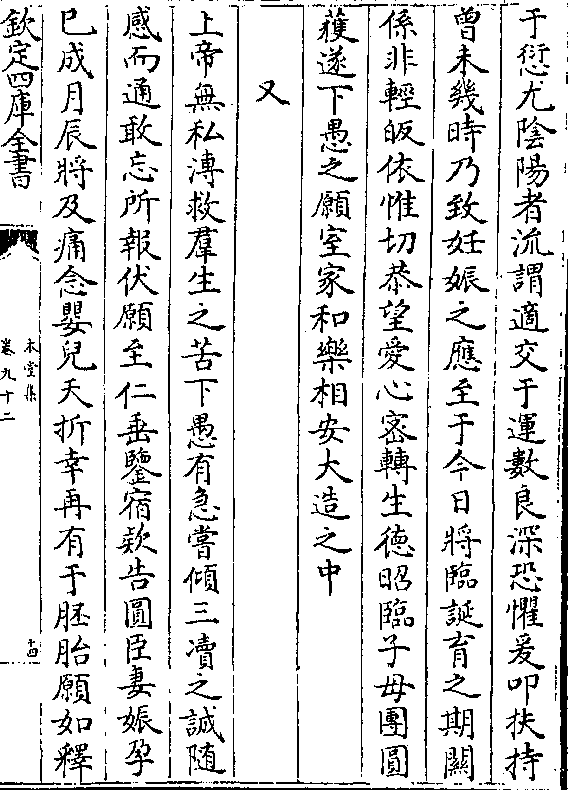 于愆尤陰陽者流謂適交于運數良深恐懼爰叩扶持
曾未幾時乃致妊娠之應至于今日將臨誕育之期關
係非輕皈依惟切恭望愛心密轉生德昭臨子母團圓
獲遂下愚之願室家和樂相安大造之中
又
上帝無私溥救羣生之苦下愚有急嘗傾三瀆之誠随
感而通敢忘所報伏願至仁垂鑒宿欵告圓臣妻娠孕
已成月辰將及痛念嬰兒夭折幸再有于胚胎願如釋
欽定四庫全書
本堂集
卷九十二
十四